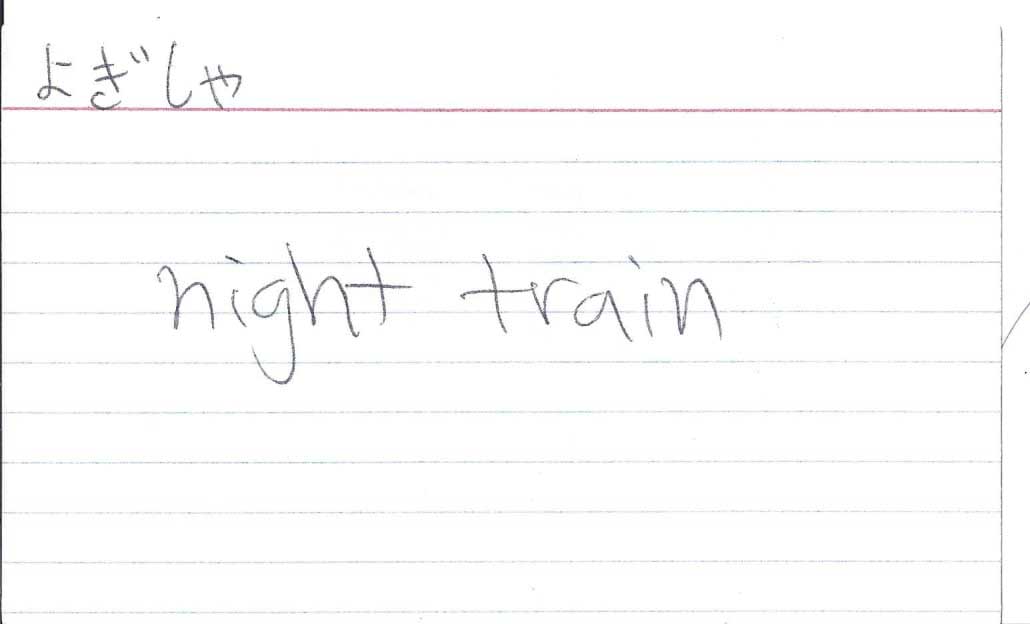 よぎしゃ
night train